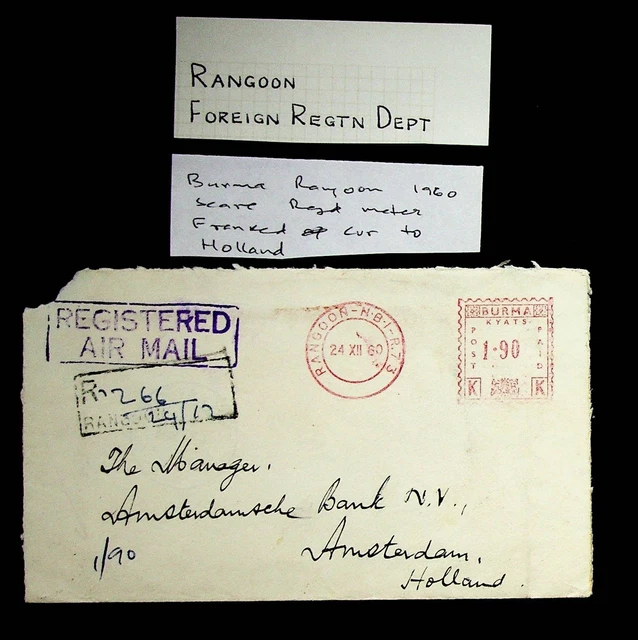 RANGOON
FOREIGN REGTN DEPT
Burma Rangoon 1960
scare Regd meter
Franked cvr to
Holland
REGISTERED
AIR MAIL
RANGOON-N.B.I-R.73
24 XII 60
BURMA
KYATS
POST
PAID
1-90
K K
R 266
24/12
The Manager.
Amsterdamsche Bank N.V.,
1/90
Amsterdam.
Holland.